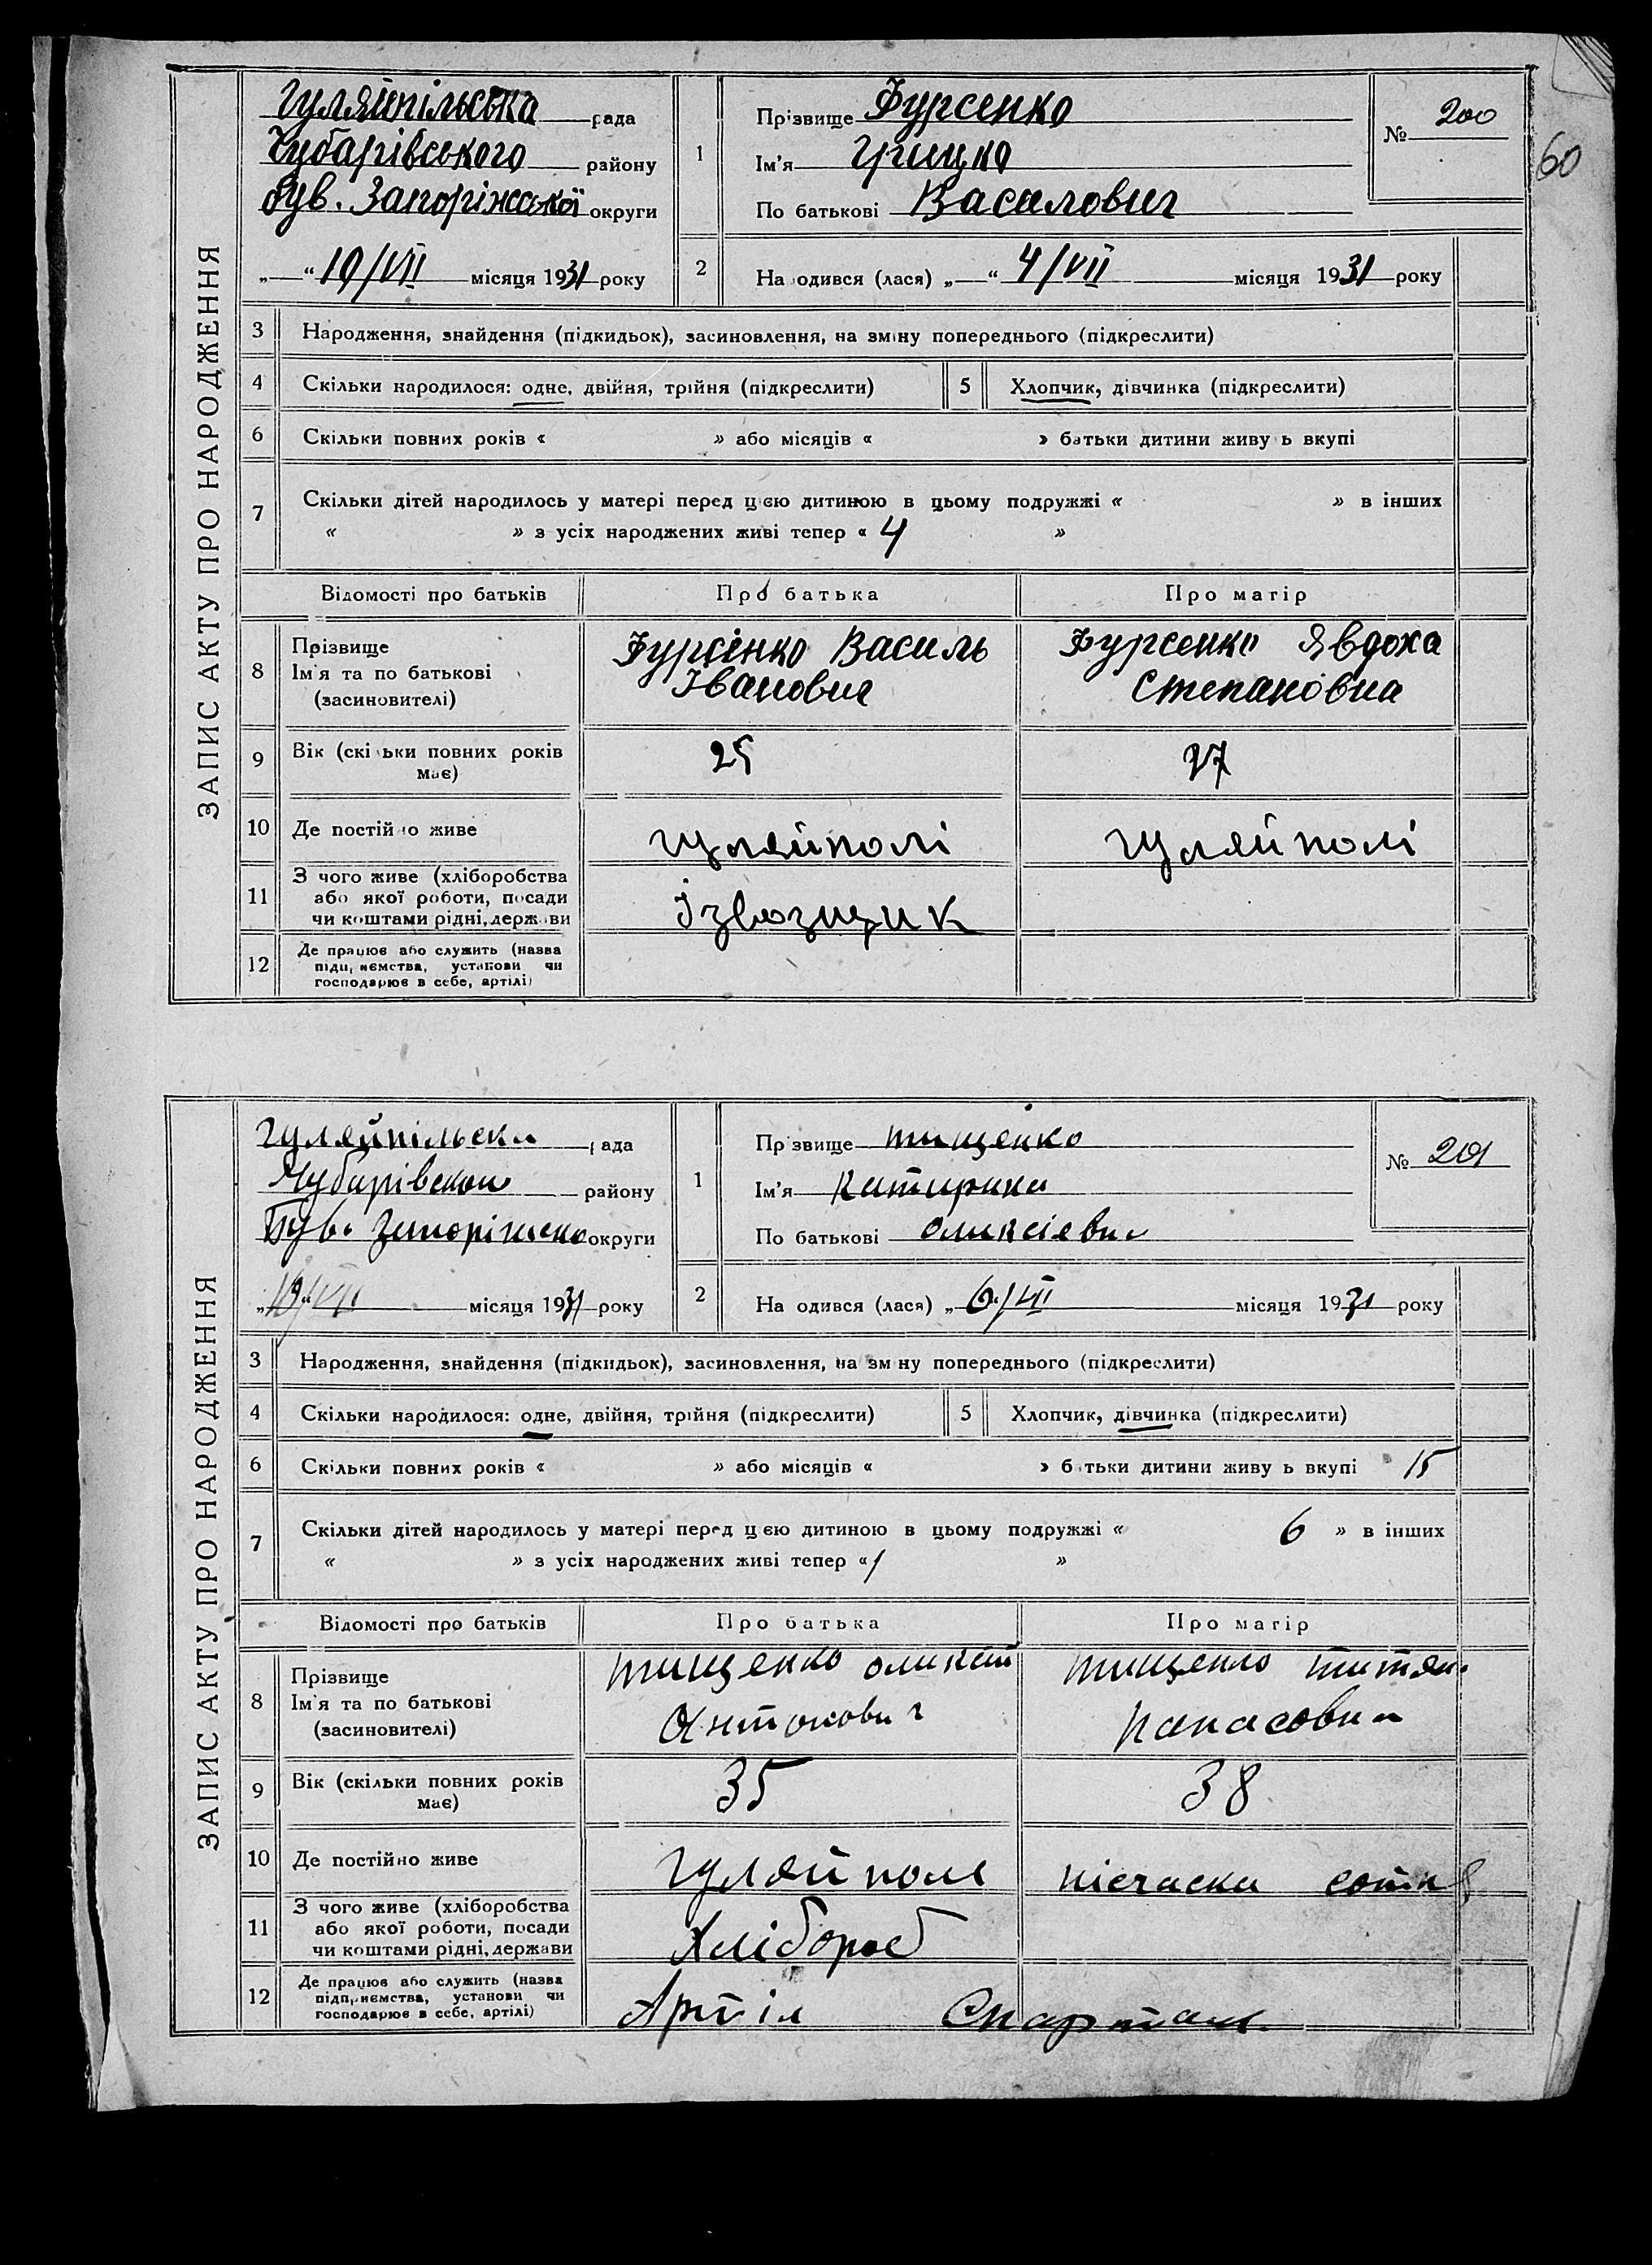 60
ЗАПИС АКТУ ПРО НАРОДЖЕННЯ
Гуляйпільська рада
Чубарівського району
був. Запоріжської округи
„ “ 19/VII місяця 1931 року
1
Прізвище Фурсенко
Ім'я Грицко
По батькові Василович
№ 200
2 На одився (лася) „ “ 4/VII місяця 1931 року
3 Народження, знайдення (підкидьок), засиновлення, на зміну попереднього (підкреслити)
4 Скільки народилося: одне, двійня, трійня (підкреслити) 5 Хлопчик, дівчинка (підкреслити)
6 Скільки повних років « » або місяців « » батьки дитини живу ь вкупі
7 Скільки дітей народилось у матері перед цією дитиною в цьому подружжі « » в інших
« » з усіх народжених живі тепер « 4 »
Відомості про батьків Про батька Про матір
8 Прізвище Ім'я та по батькові (засиновителі)
Фурсінко Василь Іванович
Фурсенко Явдоха Степановна
9 Вік (скі ьки повних років має) 25 27
10 Де постійно живе Гуляйполі Гуляйполі
11 З чого живе (хліборобства або якої роботи, посади чи коштами рідні, держави Ізвозщик
12 Де працює або служить (назва підприємства, установи чи господарює в себе, артілі)
ЗАПИС АКТУ ПРО НАРОДЖЕННЯ
Гуляйпільска рада
Чубарівскои району
Був. Запоріжско округи
„19“/VII місяця 1931 року
1
Пр звище тищенко
Ім'я Катирина
По батькові Оликсіевна
№ 201
2 На одився (лася) „ 6/VII місяця 1931 року
3 Народження, знайдення (підкидьок), засиновлення, на зм ну попереднього (підкреслити)
4 Скільки народилося: одне, двійня, трійня (підкреслити) 5 Хлопчик, дівчинка (підкреслити)
6 Скільки повних років « » або місяців « » б тьки дитини живу ь вкупі 15
7 Скільки дітей народилось у матері перед цією дитиною в цьому подружжі « 6 » в інших
« » з усіх народжених живі тепер « 1 »
Відомості про батьків Про батька Про матір
8 Прізвище Ім'я та по батькові (засиновителі)
тищенко Оликсій Антонович
тищенко татян. Панасовна
9 Вік (скільки повних років має) 35 38
10 Де постійно живе Гуляйполе піщаска сотн 8
11 З чого живе (хліборобства або якої роботи, посади чи коштами рідні, держави Хлібороб
12 Де працює або служить (назва підприємства, установи чи господарює в себе, артілі) Артіл Спартак